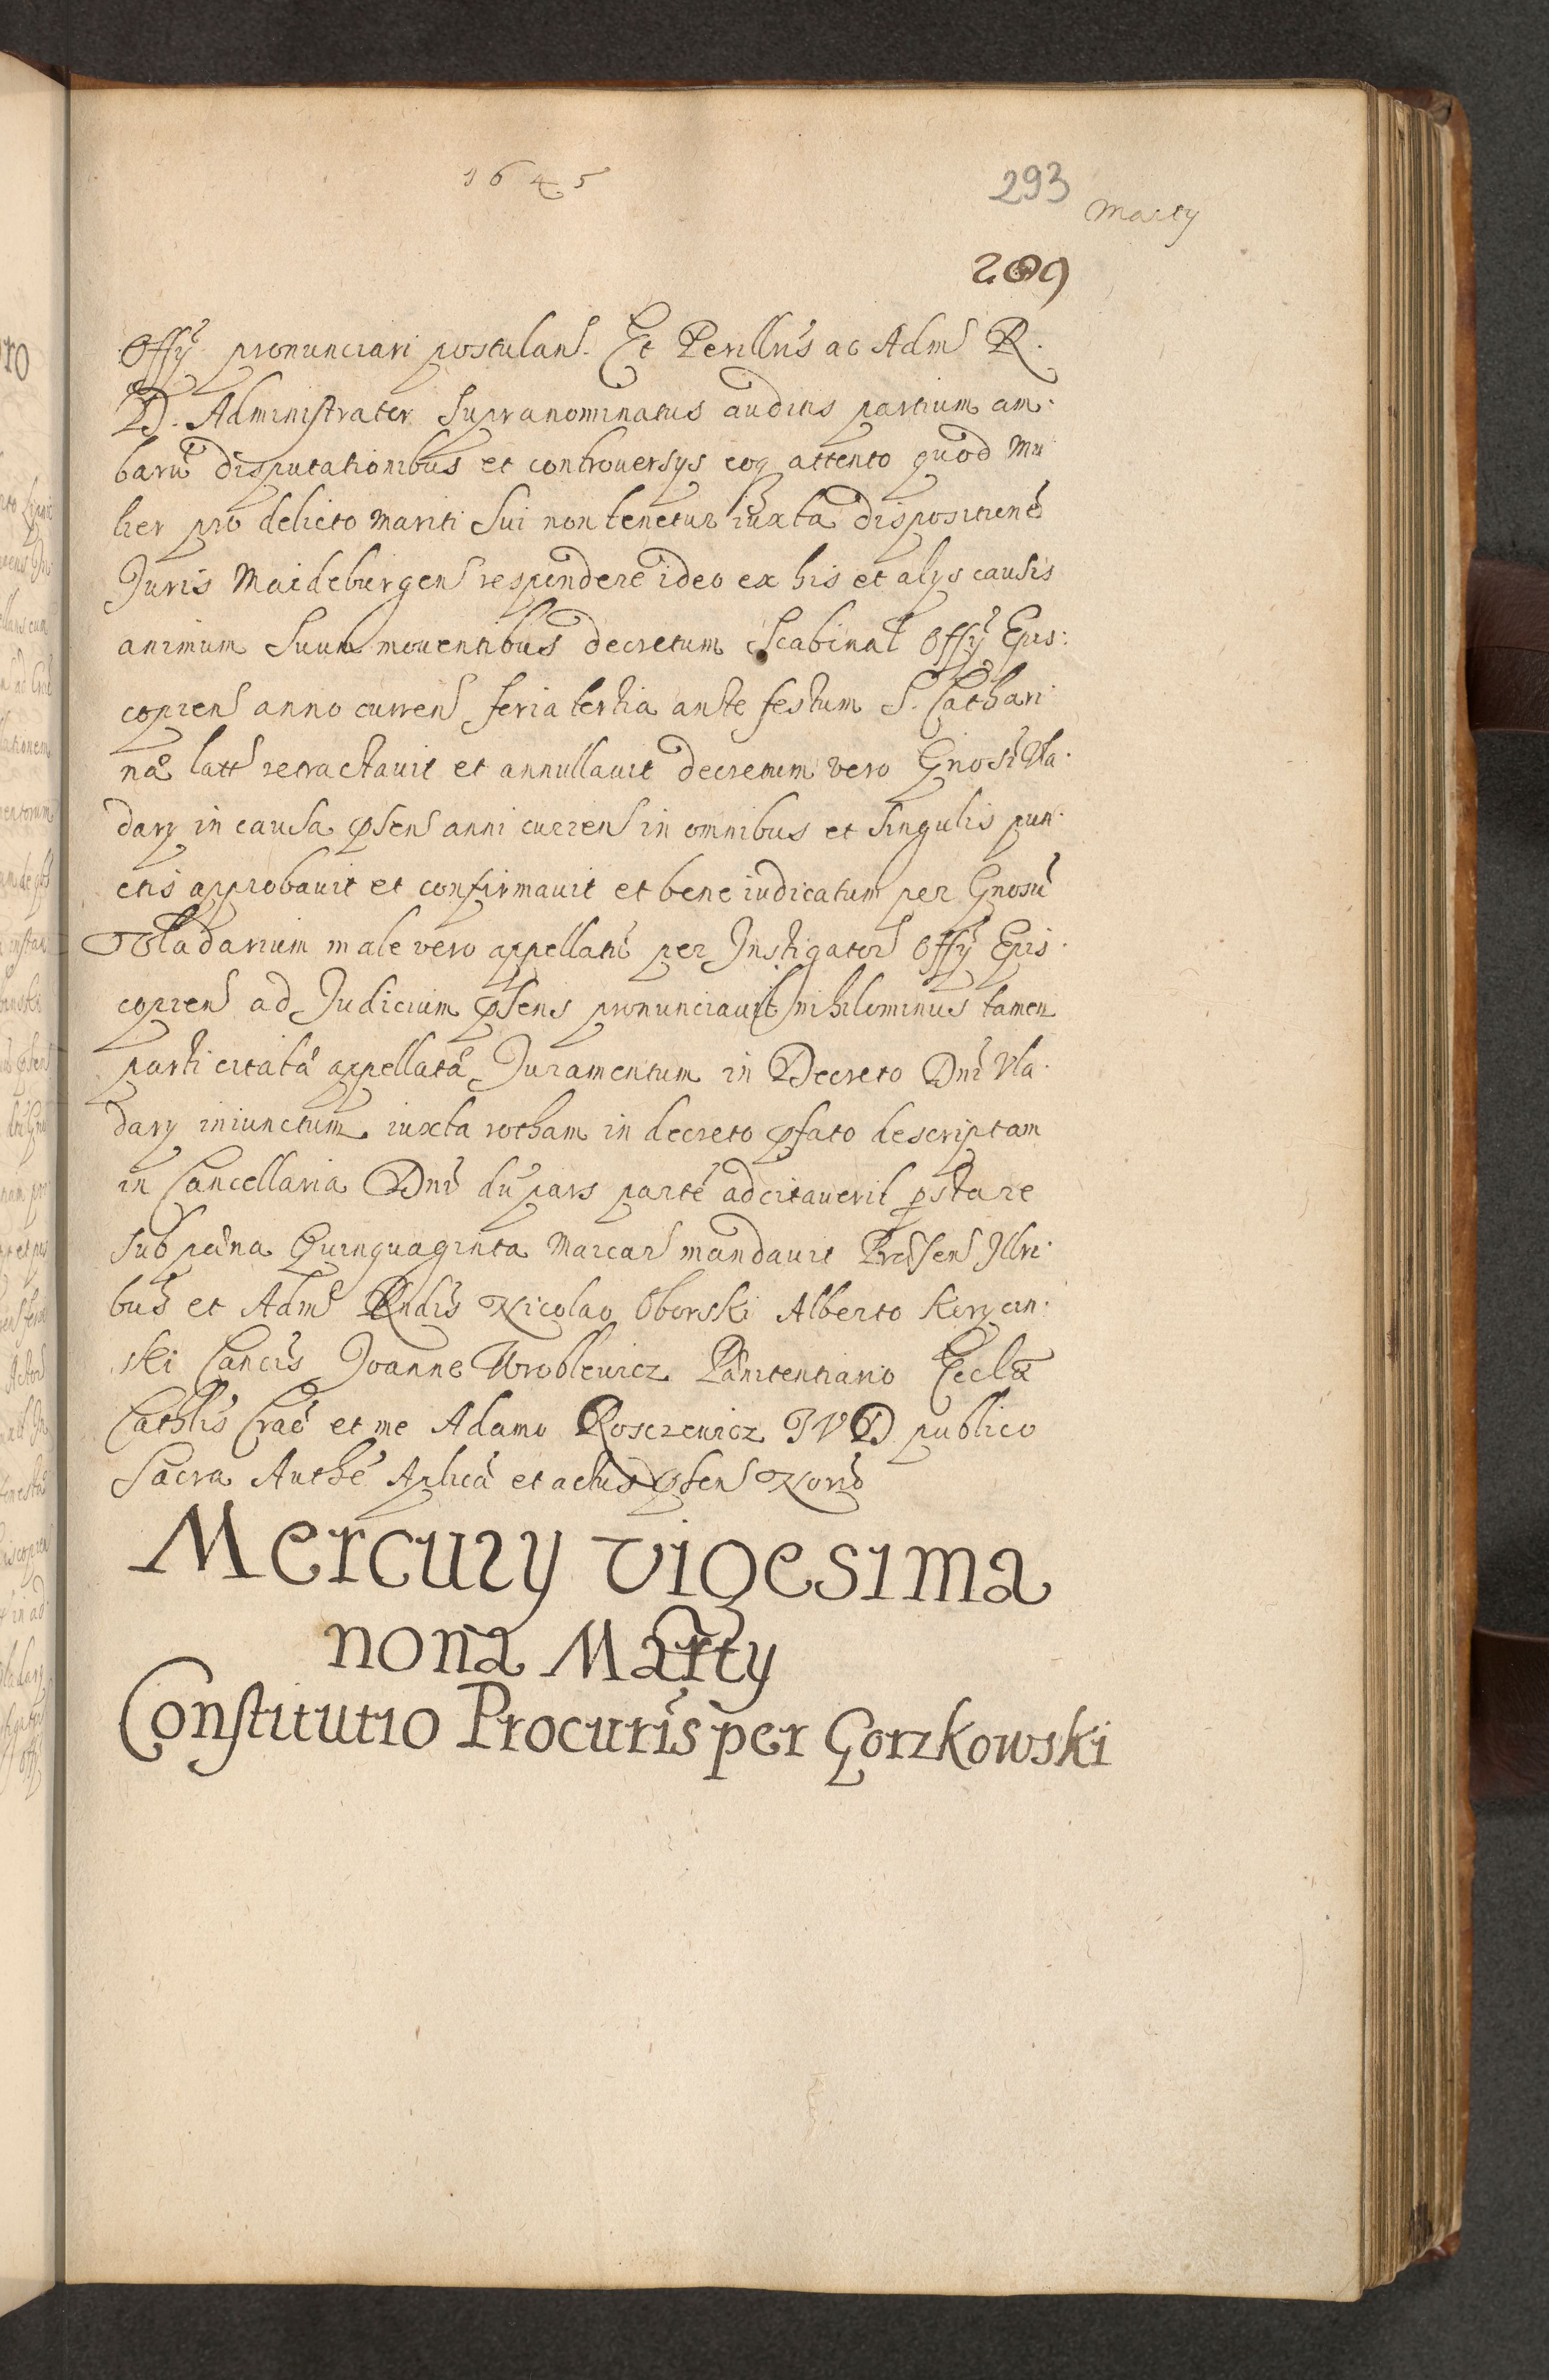 1645
293
Marty
209
Offÿ pronunciari postulans. Et Perillris ac Adms R.
D. Administrator Supranominatus auditis partium am·
barũ disputationibus et controuersys eoq attento quod Mu
lier pro delicto Mariti Sui non tenetur iuxta dispositionẽ
Juris Maideburgens respondere ideo ex his et alys causis
animum Suum mouentibus decretum Scabinal Offÿ Epis:
copiens anno currens feria tertia ante festum S. Cathari·
næ latt retractavit et annullavit decretum vero Gnosi Vla·
dary in causa pſens anni currens in omnibus et Singulis pun·
ctis approbauit et confirmauit et bene iudicatum per Gnosũ
Vladarium male vero appellatũ per Instigators Offÿ Epis·
copiens ad Judicium pſens pronunciauit nihilominus tamen
parti citatæ appellatæ Juramentum in Decreto Dni Vla·
dary iniunctum iuxta rotham in decreto pfato descriptam
in Cancellaria Dni dũ pars partẽ adcitaverit pstare
sub pæna Quinquaginta Marcars mandavit Præsens Illri·
bus et Adms Rndis Nicolao Oborski Alberto
ski Cancis Joanne Wroblewicz Pænitentiario Ecclæ
Cathlis Crac et me Adamo Roszewicz JVD publico
Sacra Authẽ Aplicâ et actus pſens Norio
Mercury vigesima
nona Marty
Constitutio Procuris per Gorzkowski